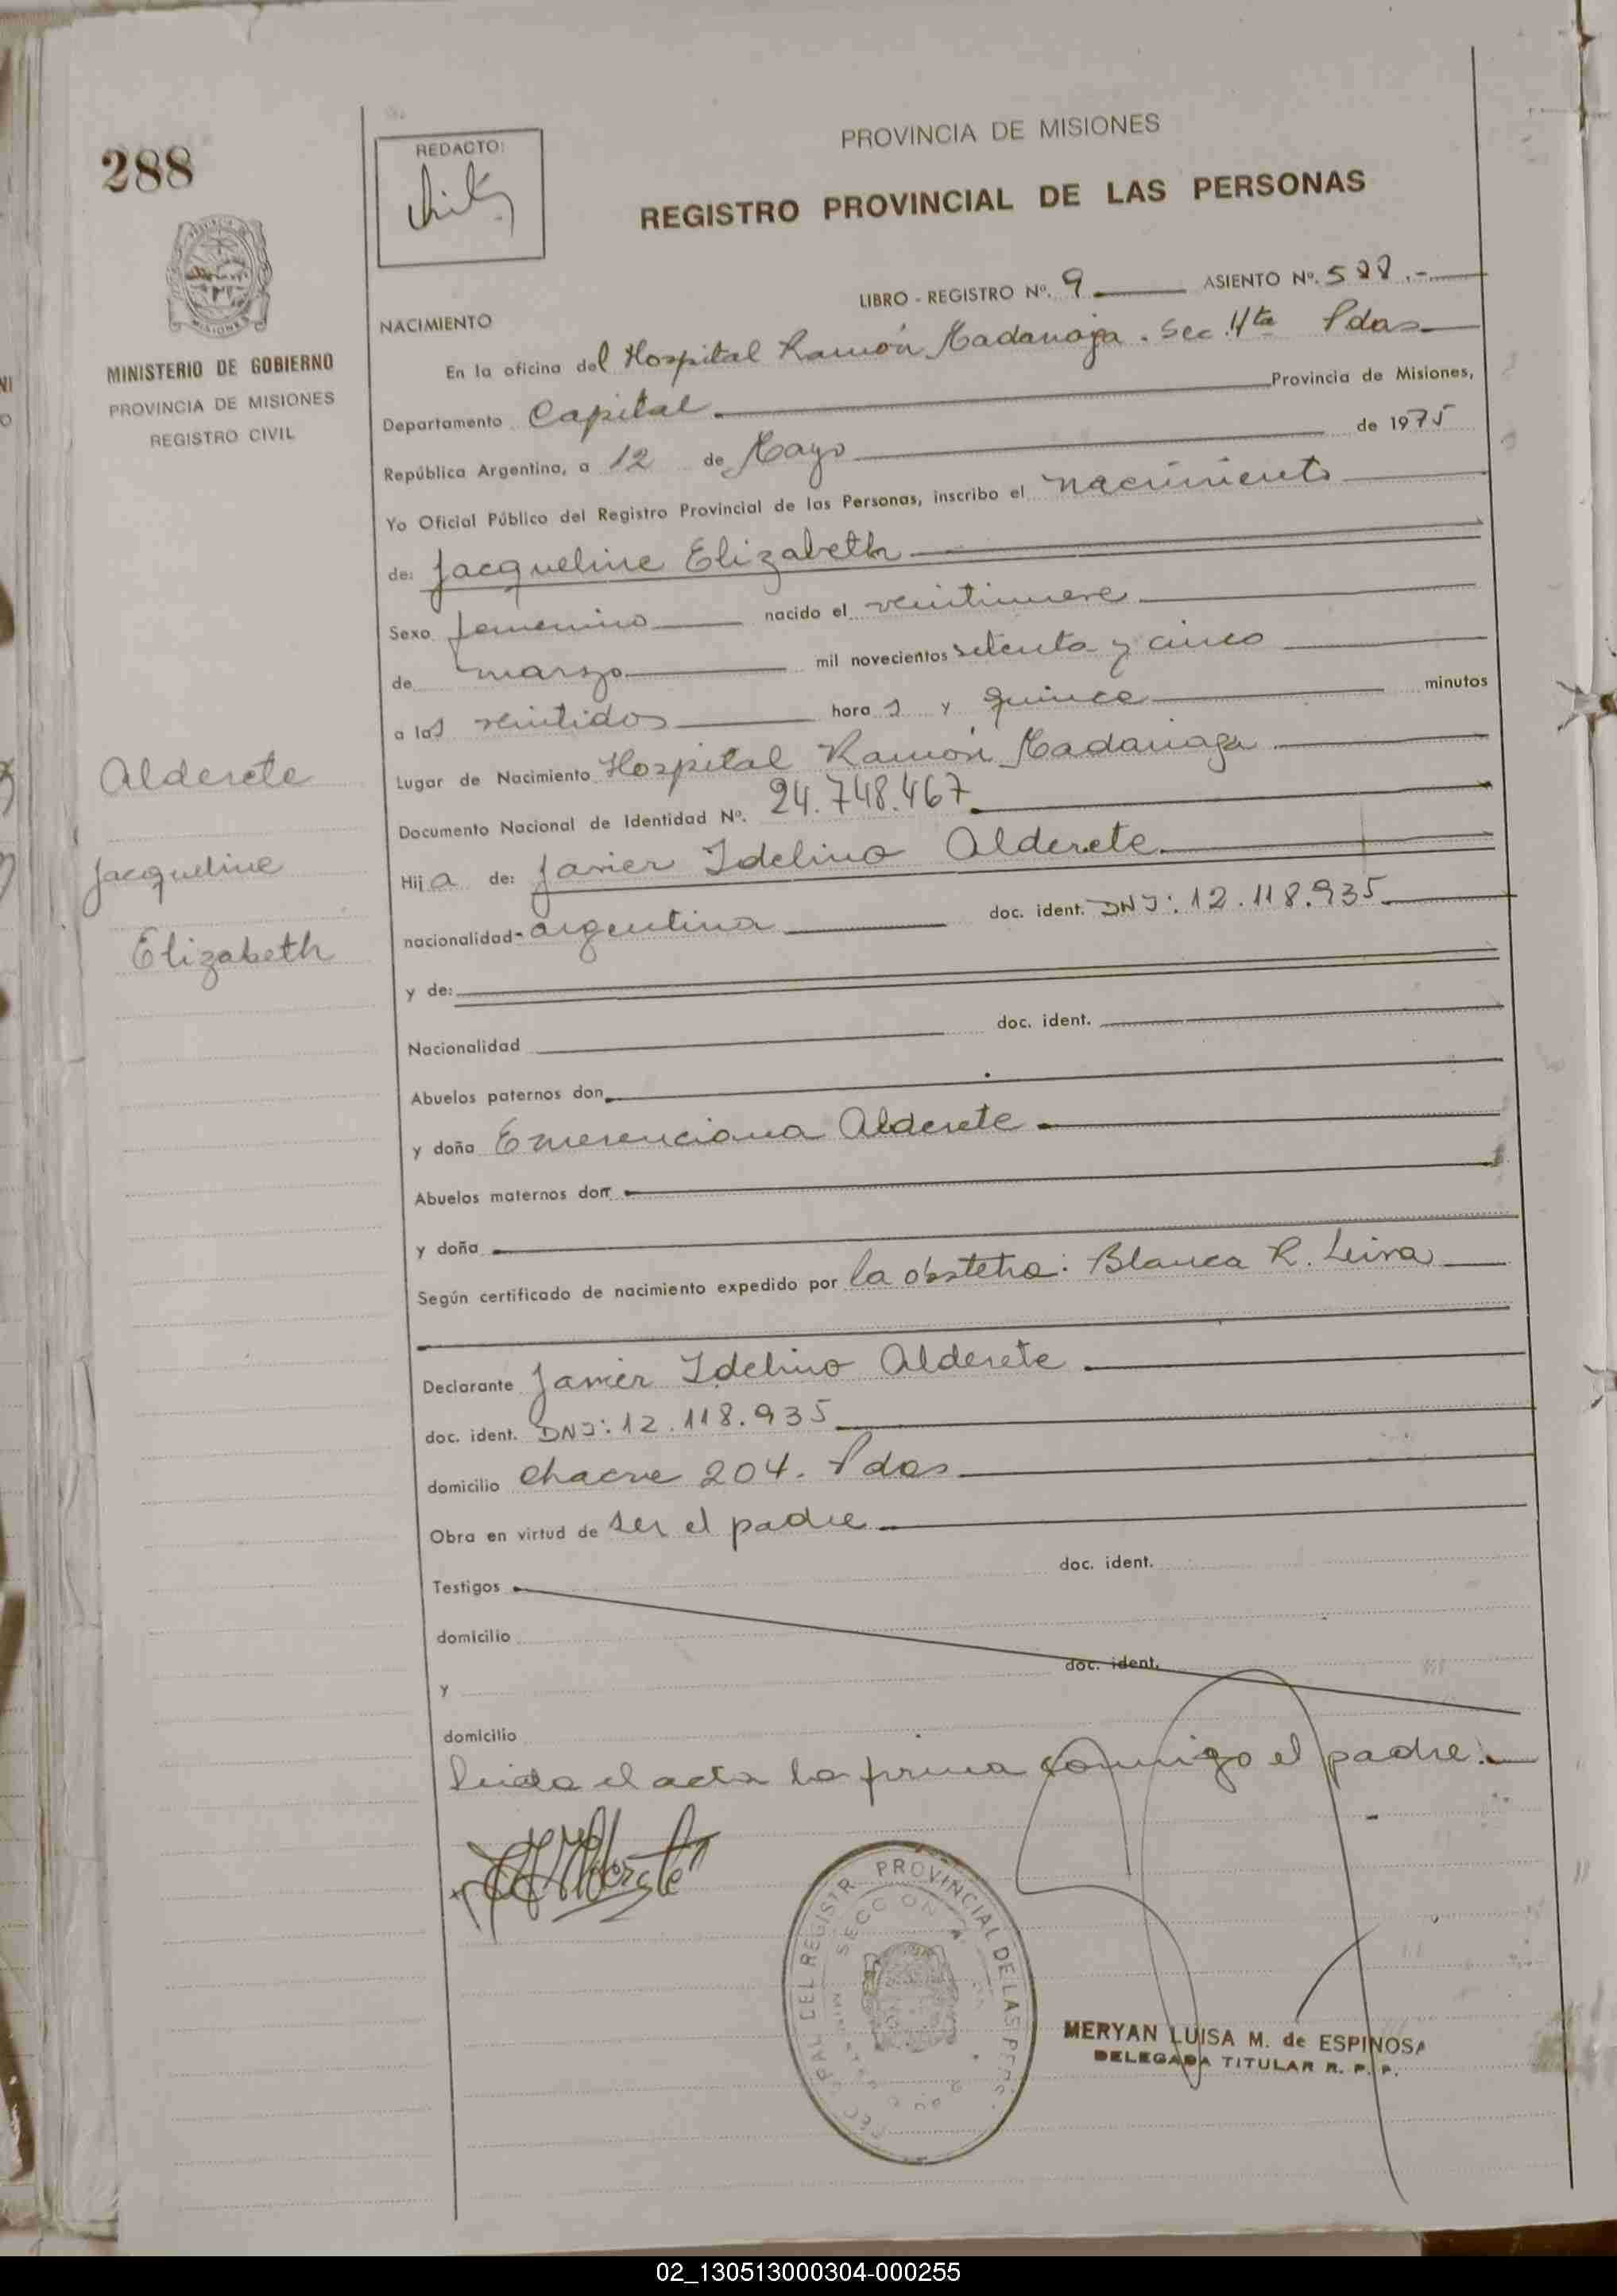 288
REDACTO:
PROVINCIA DE MISIONES
REGISTRO PROVINCIAL DE LAS PERSONAS
LIBRO - REGISTRO Nº. 9 ASIENTO Nº. 588.-
MISIONES
MINISTERIO DE GOBIERNO
PROVINCIA DE MISIONES
REGISTRO CIVIL
NACIMIENTO
En la oficina del Hospital Ramón Madariaga. Sec. 4ta Pdas
Departamento Capital. Provincia de Misiones,
República Argentina, a 12 de Mayo de 1975
Yo Oficial Público del Registro Provincial de las Personas, inscribo el nacimiento
de: Jacqueline Elizabeth
Sexo femenino nacido el veintinueve
de marzo mil novecientos setenta y cinco
a las veintidos horas y quince minutos
Lugar de Nacimiento Hospital Ramón Madariaga
Documento Nacional de Identidad Nº. 24.748.467
Hija de: Javier Idelino Alderete
nacionalidad argentina doc. ident. DNI: 12.118.935
y de:
Nacionalidad doc. ident.
Abuelos paternos don
y doña Emerenciana Alderete
Abuelos maternos don
y doña
Según certificado de nacimiento expedido por la obstetra: Blanca R. Leiva
Declarante Javier Idelino Alderete
doc. ident. DNI: 12.118.935
domicilio Chacra 204. Pdas
Obra en virtud de ser el padre
Testigos doc. ident.
domicilio
y doc. ident.
domicilio
leida el acta la firma conmigo el padre.
Alderete
Jacqueline
Elizabeth
PROVINCIAL DE LAS PERS.
DEL REGISTR
SECCION
MERYAN LUISA M. de ESPINOSA
DELEGADA TITULAR R. P. P.
02_130513000304-000255